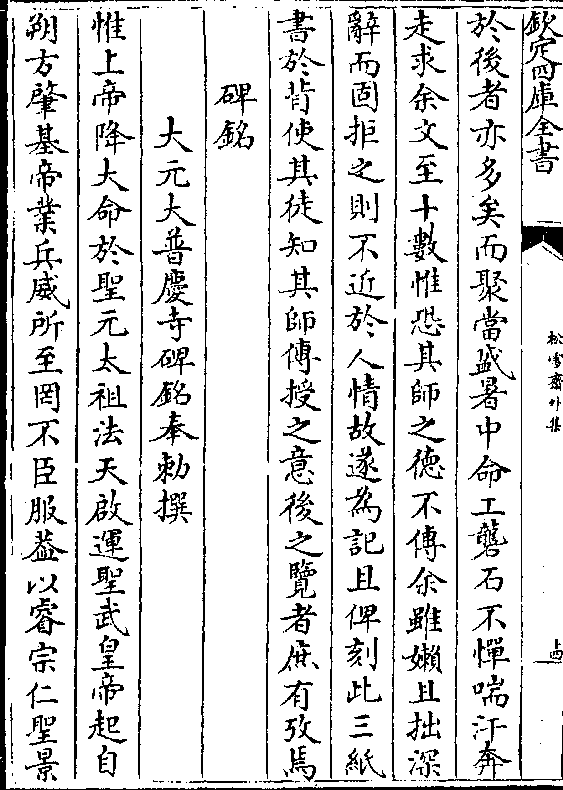 欽定四庫全書
松雪齋外集
十四
於後者亦多矣而聚當盛暑中命工礱石不憚喘汗奔
走求余文至十數惟恐其師之德不傳余雖嬾且拙深
辭而固拒之則不近於人情故遂為記且俾刻此三紙
書於背使其徒知其師傳授之意後之覽者庶有攷焉
碑銘
大元大普慶寺碑銘奉勅撰
惟上帝降大命於聖元太祖法天啟運聖武皇帝起自
朔方肇基帝業兵威所至罔不臣服葢以睿宗仁聖景